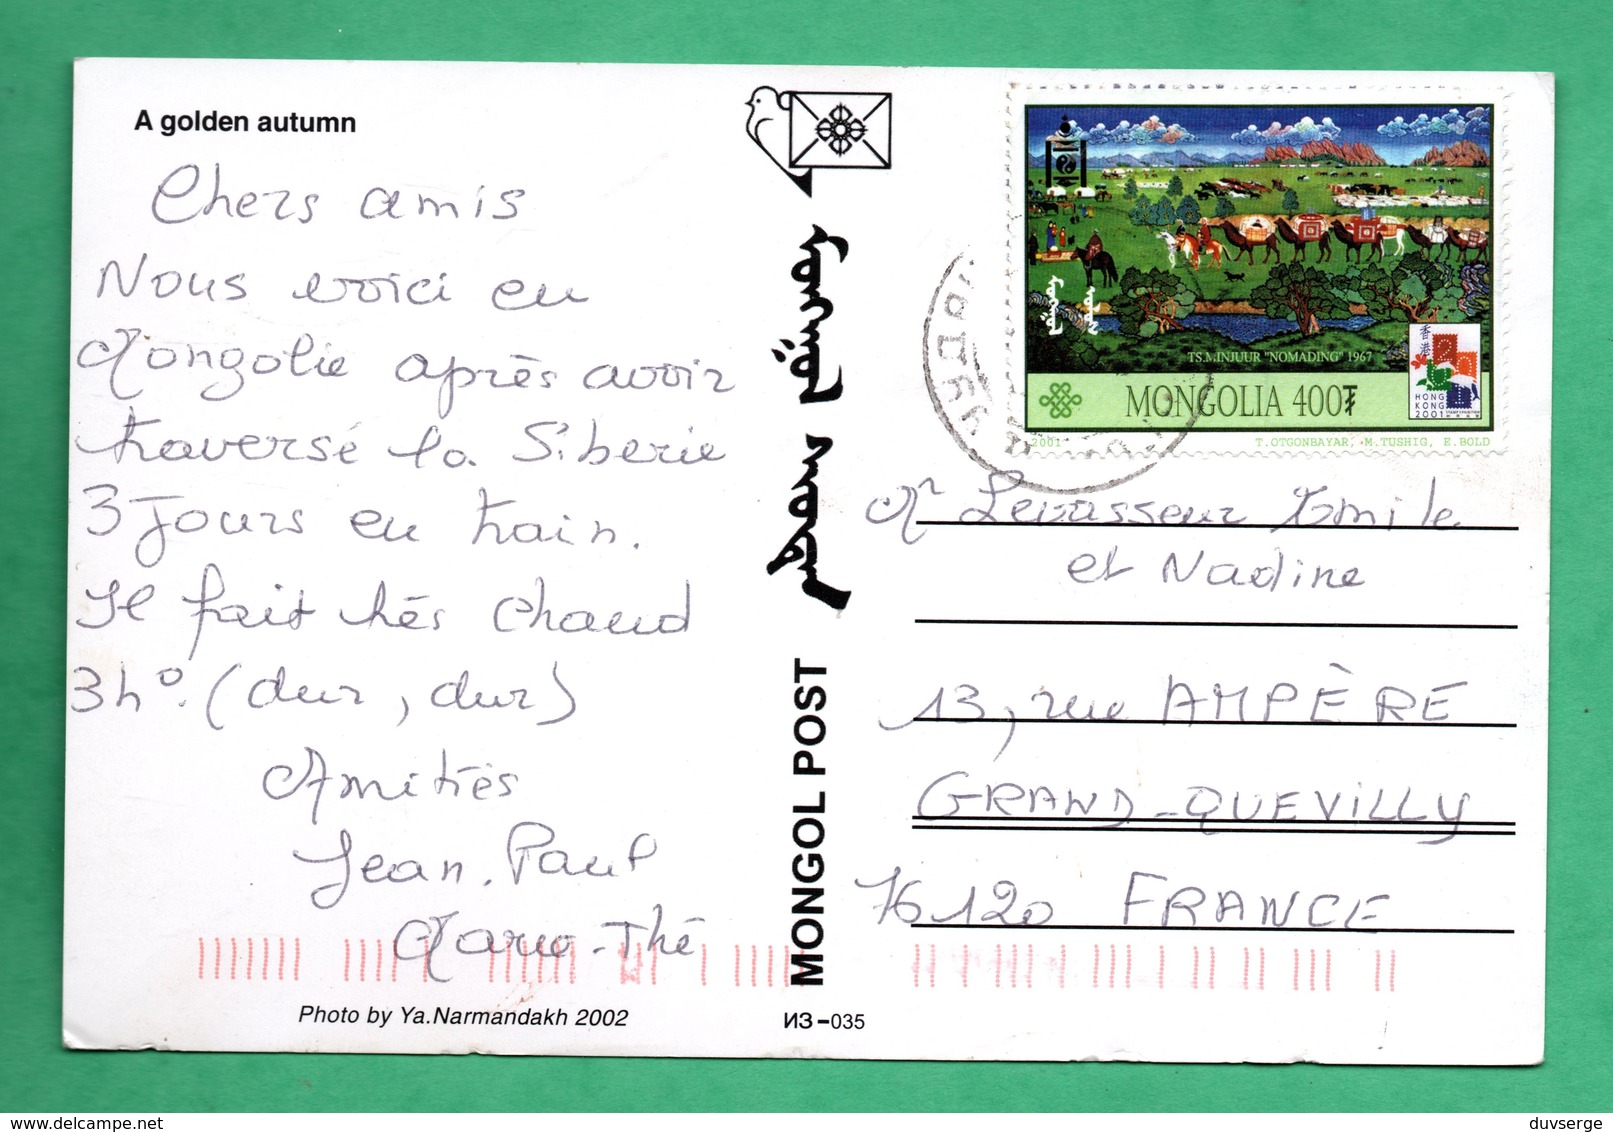 A golden autumn
Chers amis
Nous voici en
Mongolie après avoir
traversé la Sibérie
3 jours en train.
Il fait très chaud
3h°. (dur, dur)
Amitiés
Jean. Paul
Marie-Thé
Photo by Ya.Narmandakh 2002
MONGOL POST
ИЗ-035
TS.MINJUUR "NOMADING" 1967
MONGOLIA 400₮
香港
HONG
KONG
2001
STAMP EXHIBITION
2001
T.OTGONBAYAR, M.TUSHIG, E.BOLD
Mr Levasseur Emile
et Nadine
13, rue AMPÈRE
GRAND-QUEVILLY
76120 FRANCE
delcampe.net
duvserge